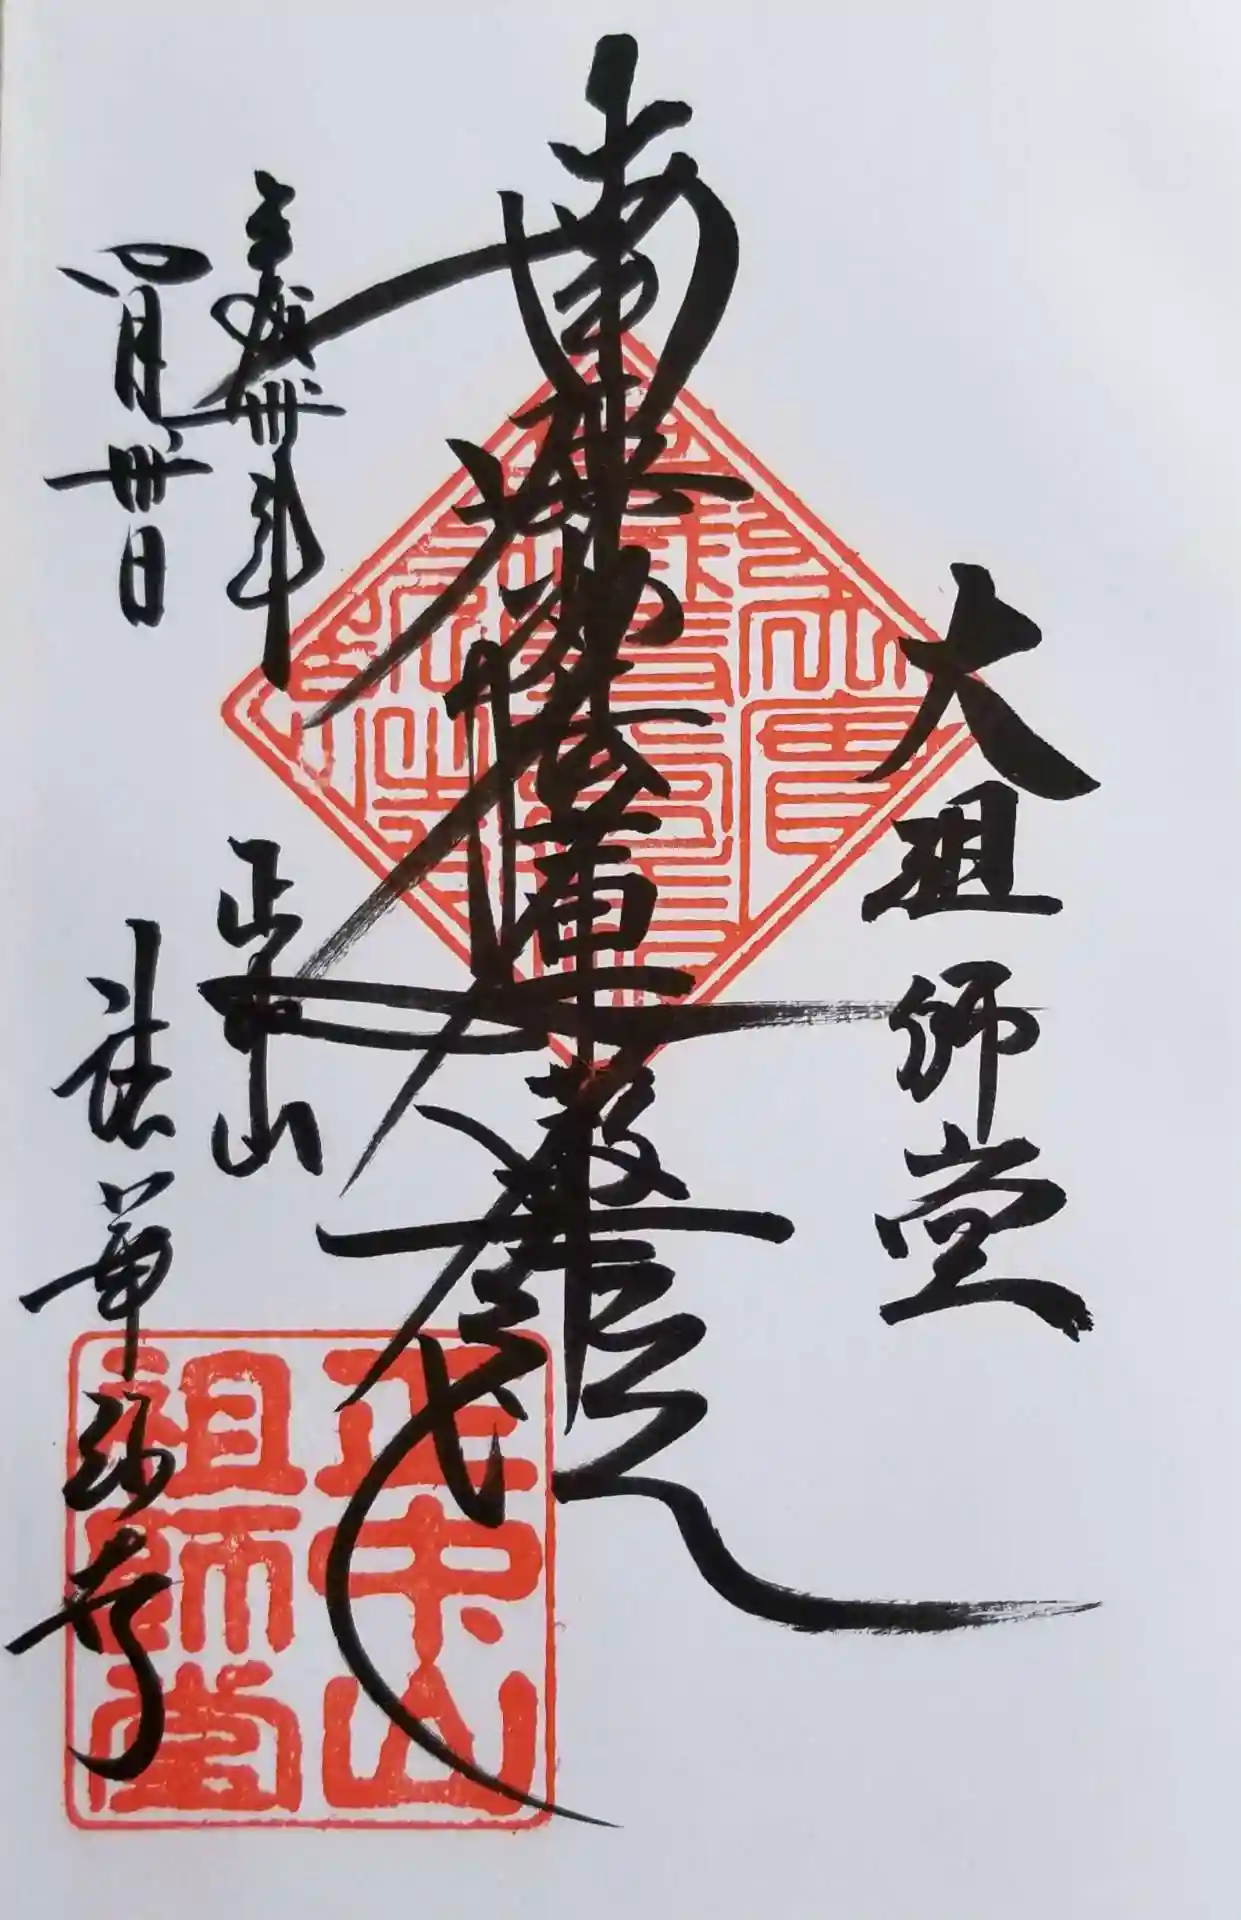 大祖師堂
南無妙法蓮華経
平成卅年
四月卅日
正中山
法華経寺
正中山
祖師堂